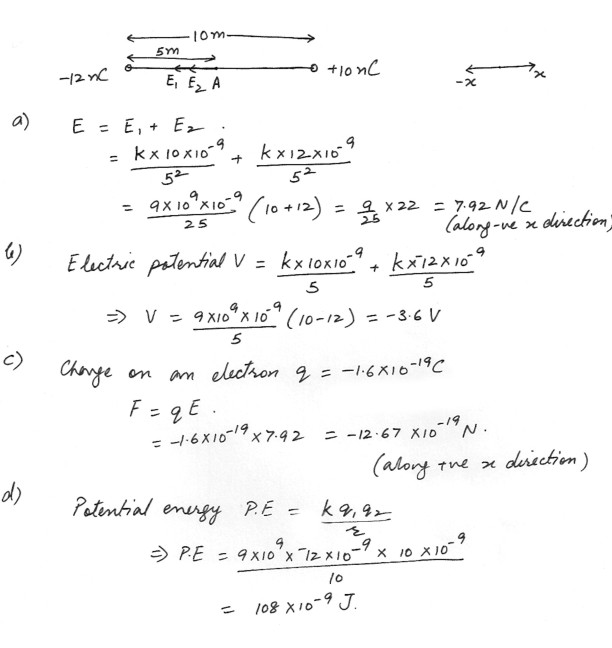 10m
5m
-12 nC E₁ E₂ A +10 nC -x x
a) E = E₁ + E₂ .
= k×10×10⁻⁹/5² + k×12×10⁻⁹/5²
= 9×10⁹×10⁻⁹/25 (10+12) = 9/25 ×22 = 7.92 N/C
(along -ve x direction)
b) Electric potential V = k×10×10⁻⁹/5 + k×-12×10⁻⁹/5
⇒ V = 9×10⁹×10⁻⁹/5 (10-12) = -3.6 V
c) Charge on an electron q = -1.6×10⁻¹⁹C
F = qE .
= -1.6×10⁻¹⁹ ×7.92 = -12.67 ×10⁻¹⁹ N.
(along +ve x direction)
d) Potential energy P.E = k q₁ q₂/r
⇒ P.E = 9×10⁹ × -12×10⁻⁹ × 10 ×10⁻⁹/10
= 108 ×10⁻⁹ J.